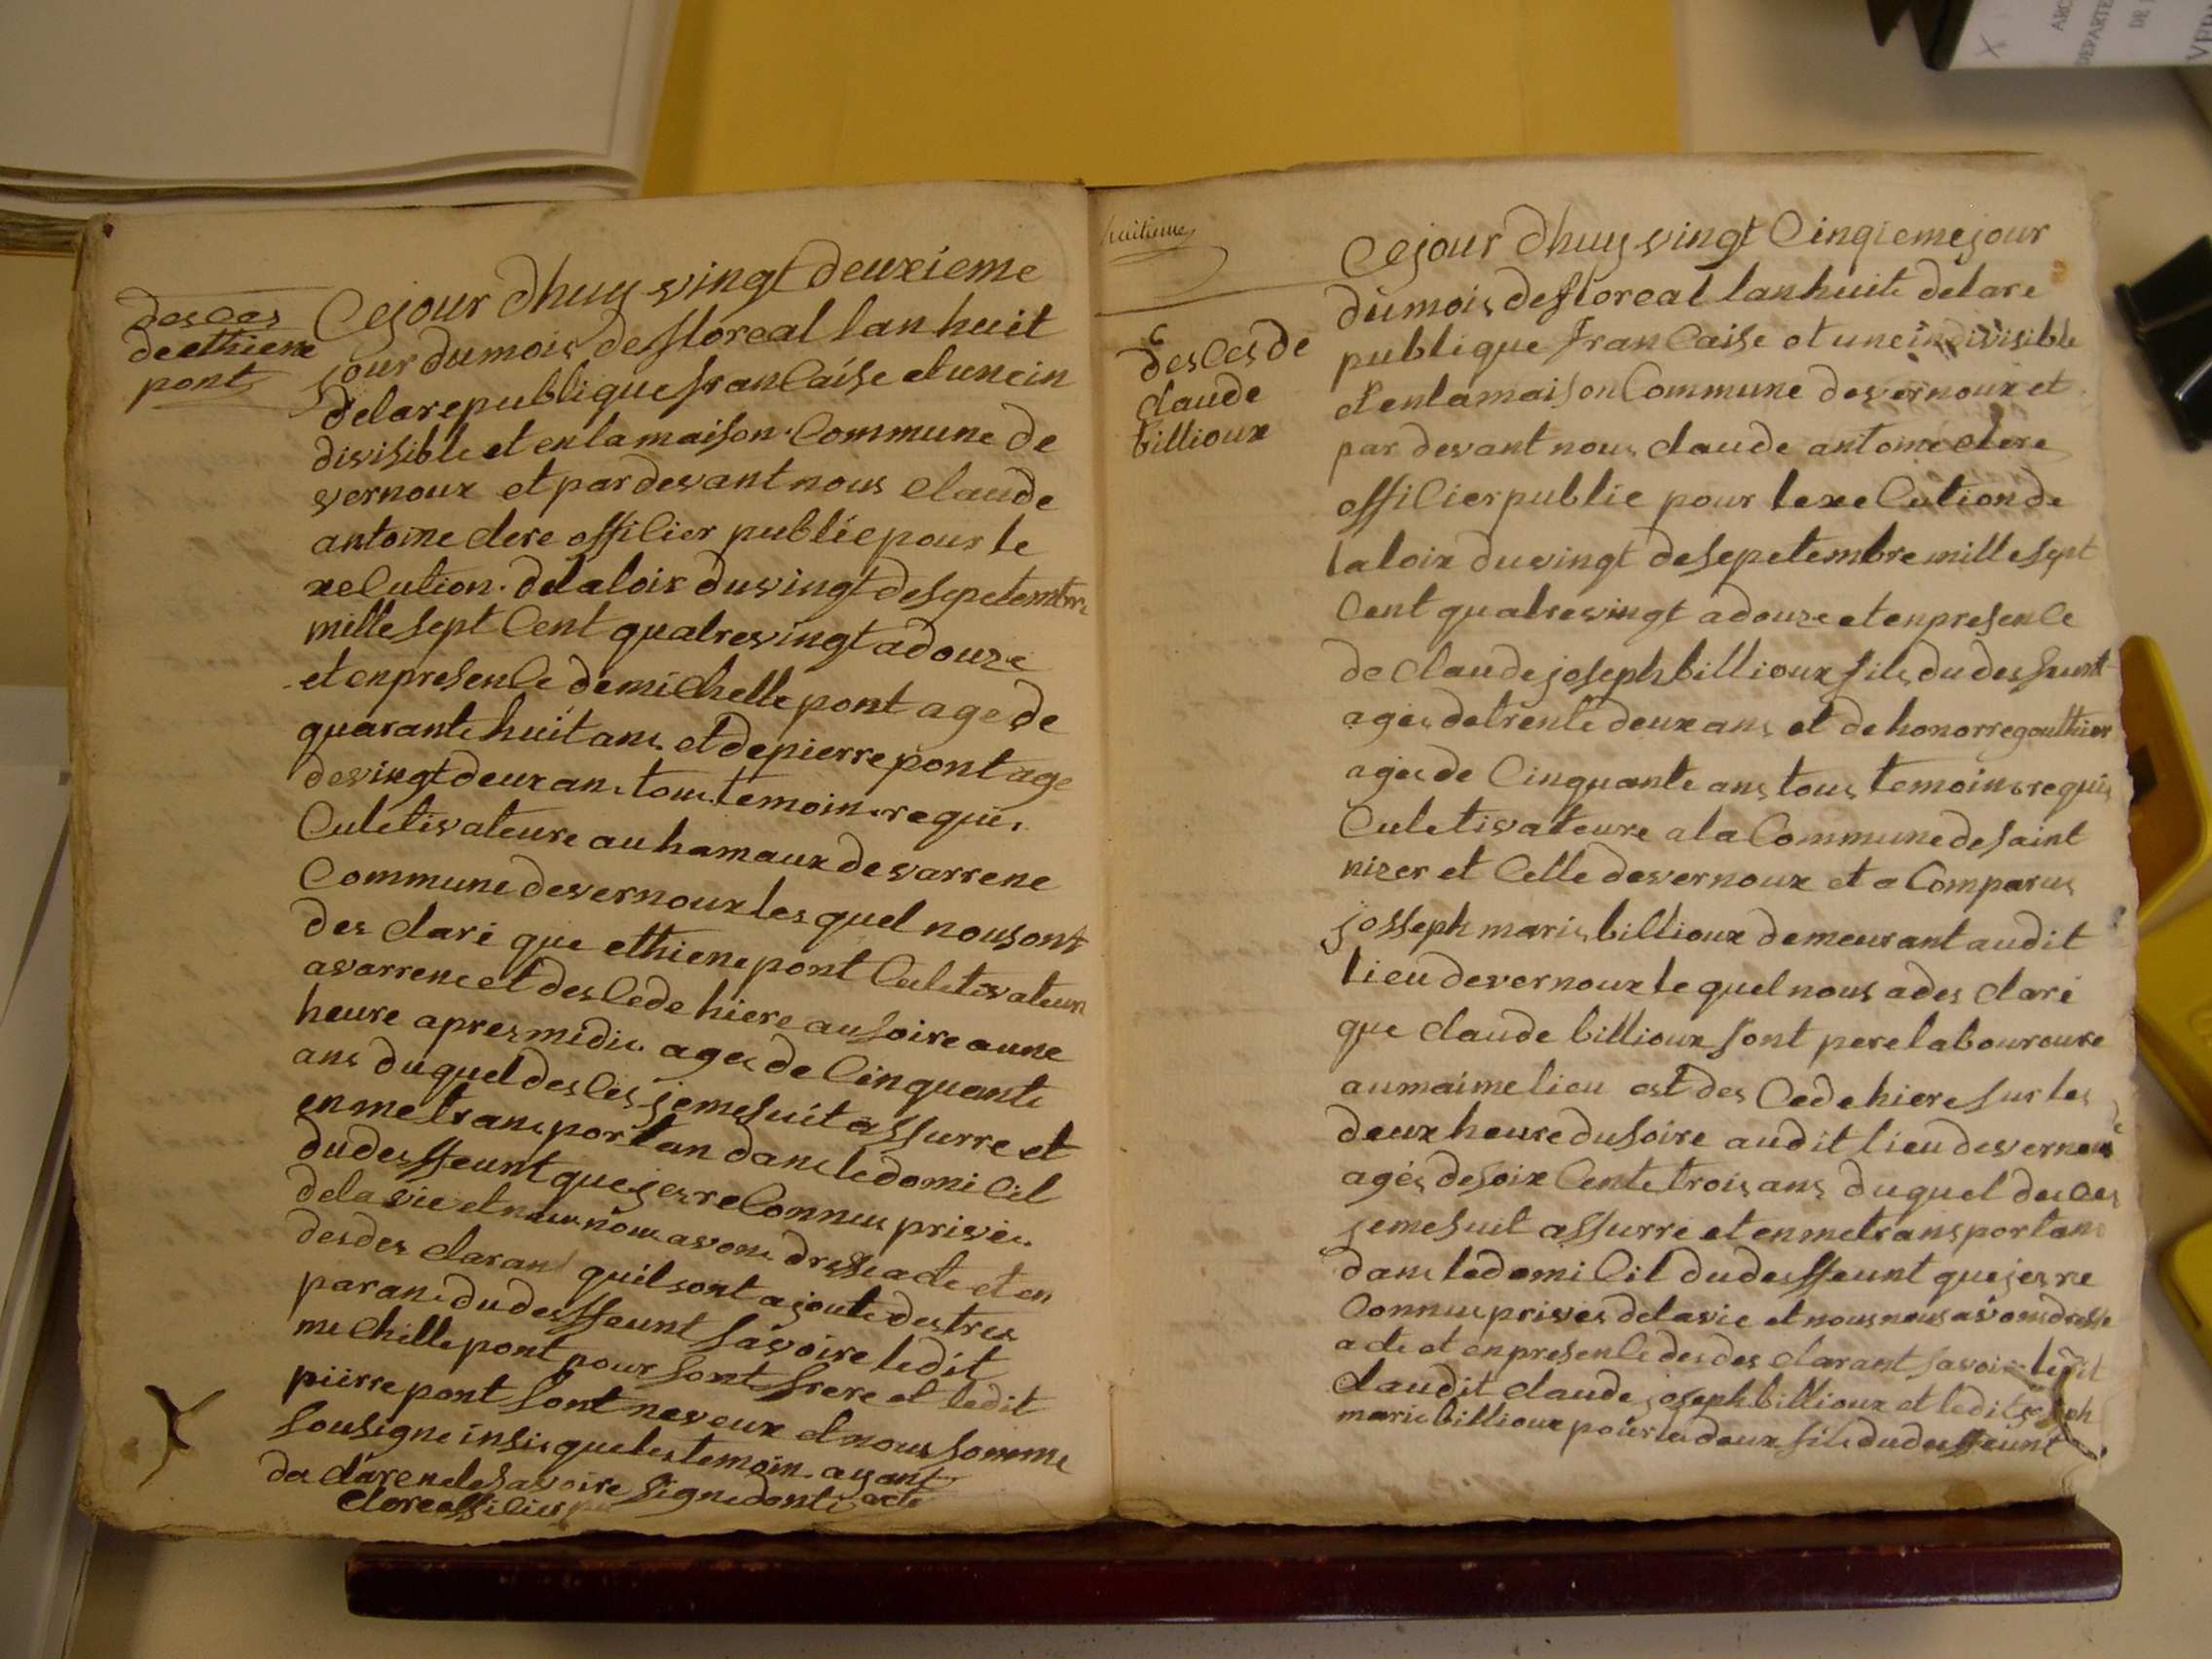 desces
de ethiene
pont
Cejour dhuy vingt deuxieme
jour du mois de floreal lan huit
de la republique francaise et une in
divisible et en la maison Commune de
vernoux et par devant nous Claude
antoine clere offilier publie pour le
xelution de la loix du vingt de sepetembre
mille sept Cent quatre vingt a douze
et en presence de miChelle pont age de
quarante huit ans et de pierre pont age
de vingt deux ans tous temoins requis
Culetivateure au hamaux de varrene
Commune de vernoux les quel nous ont
des clare que ethiene pont Culetivateure
a varrene et des Cede hiere au soire a une
heure apres midis ages de Cinquante
ans du quel desces je me suit assurre et
en me transportan dans le domicil
du desffeunt que jes reConnus prives
de la vie et nous avons dresse acte et en
des des claran quil sont ajoute destres
parans du desffeunt savoire ledit
miChelle pont pour sont frere et ledit
pierre pont sont neveux et nous somme
sousigne insis que les temoin ayant
des clare ne le savoire signe dont acte
clere offilier
huitieme
desces de
Claude
billioux
Cejour dhuy vingt Cinqieme jour
du mois de floreal lan huite de la re
publique francaise et une indivisible
et en la maison Commune de vernoux et
par devant nous Claude antoine clere
offilier publie pour lexeCution de
la loix du vingt de sepetembre mille sept
Cent quatre vingt a douze et en presence
de Claude joseph billioux fils du desfunt
ages de trente deux ans et de honorre gauthier
ages de Cinquante ans tous temoins requis
Culetivateure a la Commune de saint
nizer et Celle de vernoux et a Comparus
josseph marie billioux demeurant audit
lieu de vernoux le quel nous a des clare
que Claude billioux sont pere laboureure
au maime lieu est des Cede hiere sur les
deux heure du soire audit lieu de vernoux
ages de soix Cente trois ans du quel desces
je me suit assurre et en me transportans
dans le domicil du desffeunt que jes re
Connus prives de la vie et nous nous avons dresse
acte et en presence des des clarant savoire ledit
Claudit Claude joseph billioux et ledit joseph
marie billioux pour les deux fils du desffeunt
ARC
DEPARTE
DE